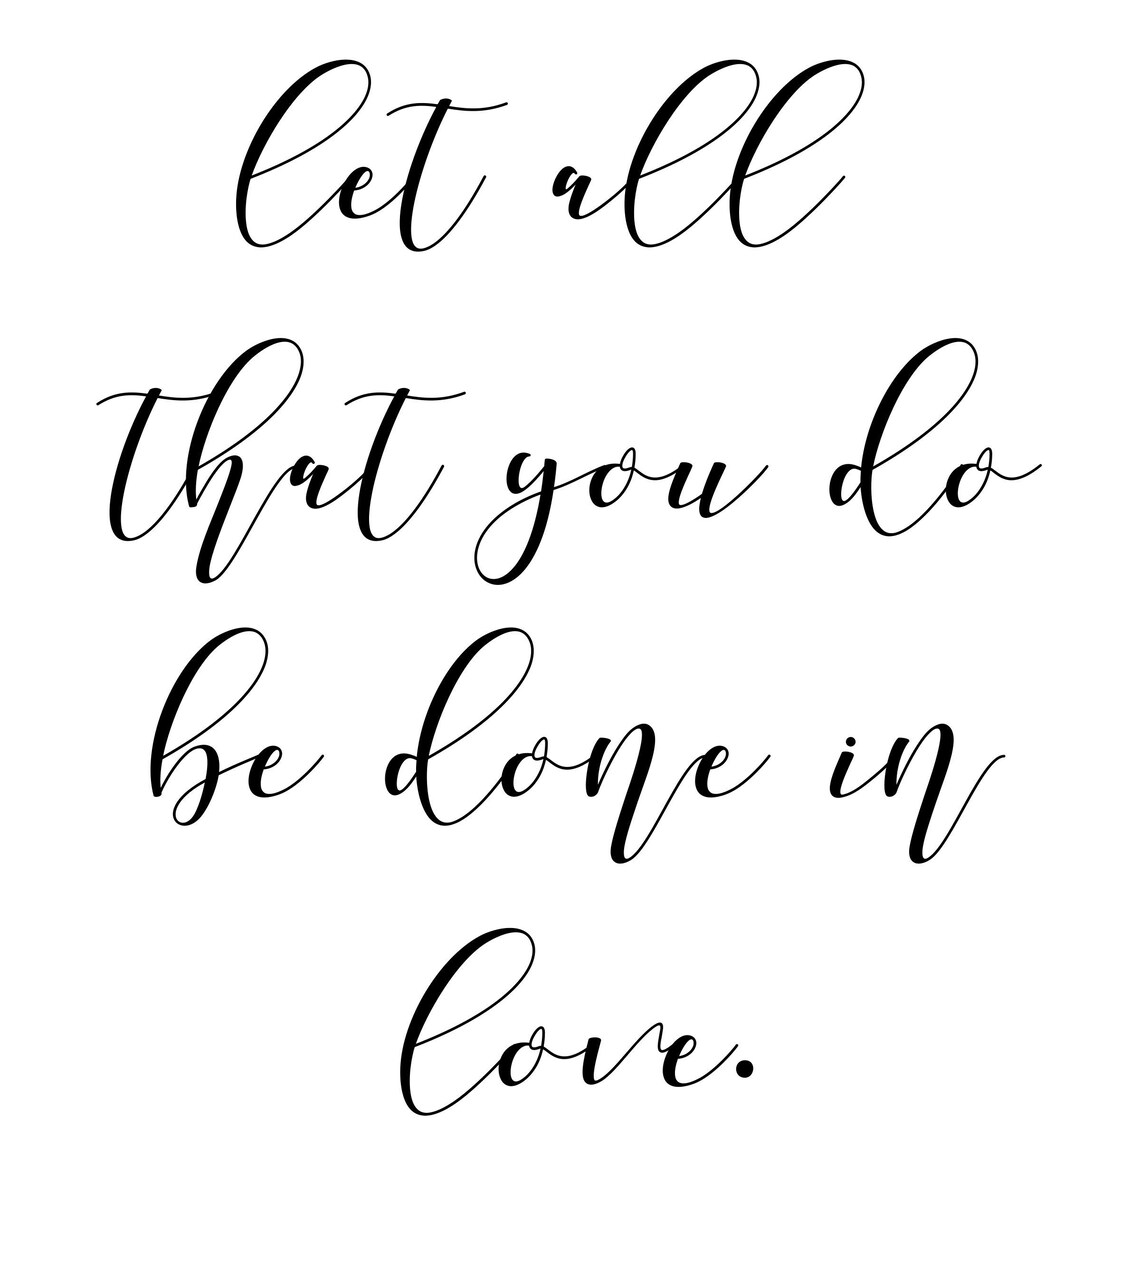 let all
that you do
be done in
love.